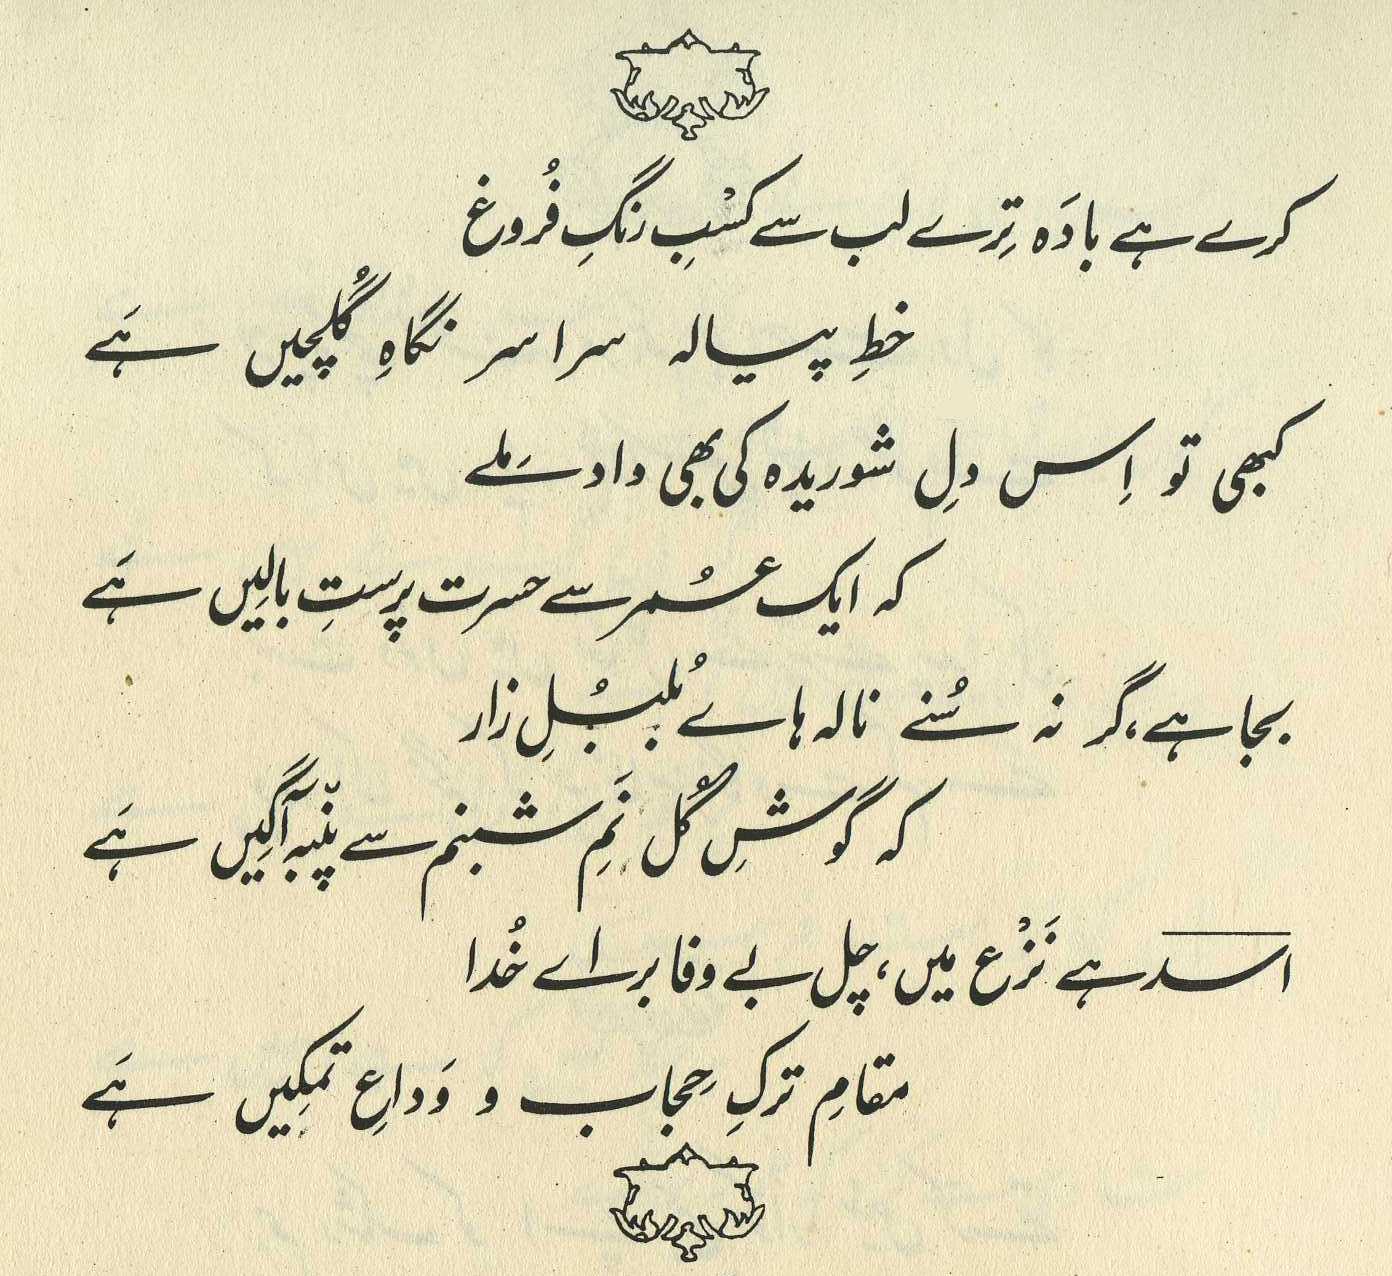 کرے ہے بادَہ تِرے لب سے کسْبِ رنگِ فُروغ
خطِ پیالہ سراسر نگاہِ گُلچیں ہَے
کبھی تو اِس دلِ شوریدہ کی بھی داد مَلے
کہ ایک عُمر سے حسرت پرستِ بالِیں ہَے
بجا ہے، گر نَہ سُنے نالہ ہاے بُلبُلِ زار
کہ گوشِ گُل نَمِ شبنم سے پنْبہ آگِیں ہَے
اسد ہے نَزْع میں، چل بے وفا براے خُدا
مقامِ ترکِ حِجاب و وَداعِ تمکِیں ہَے